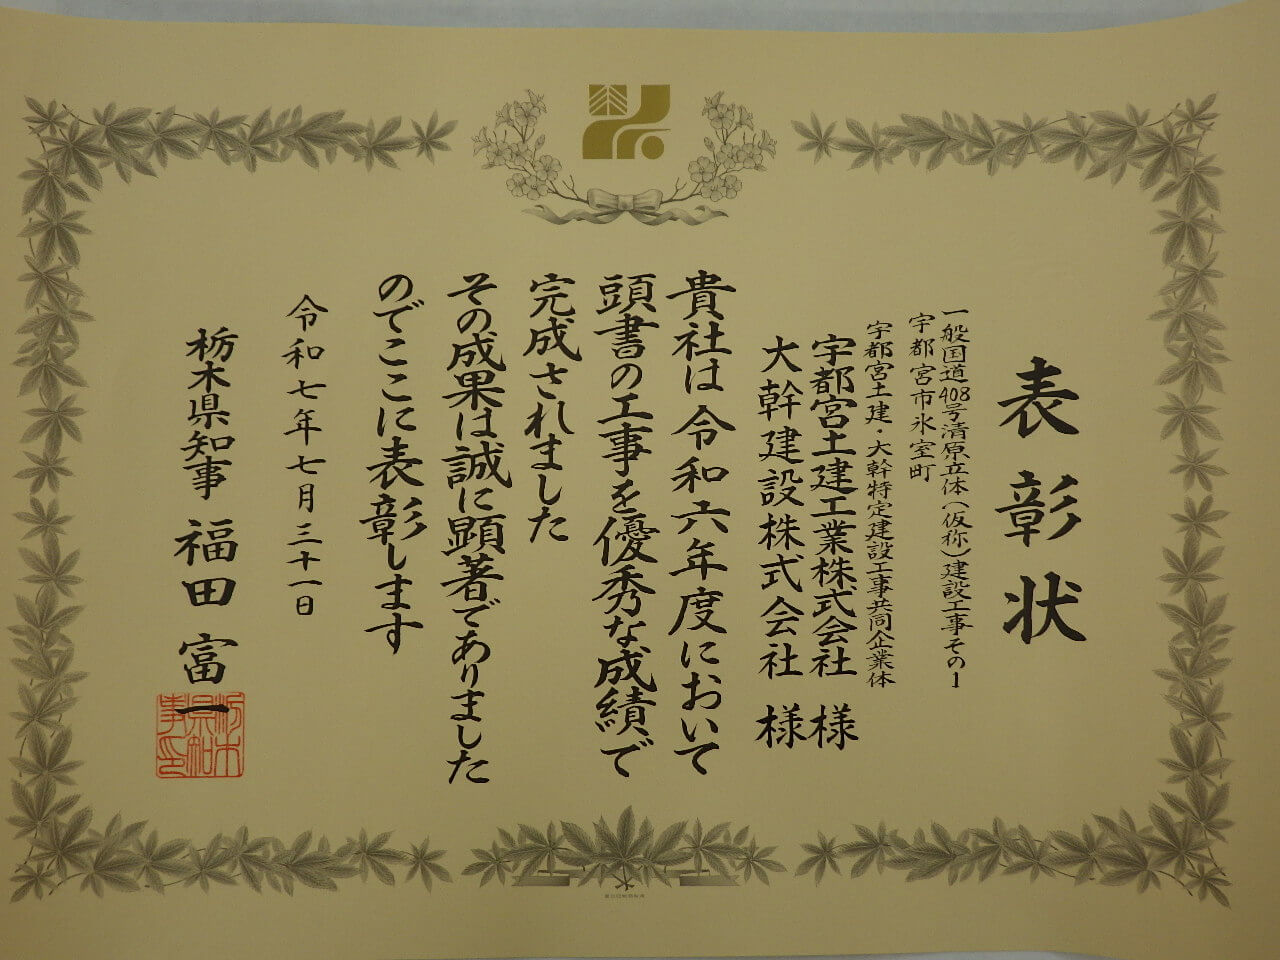 表彰状
一般国道408号清原立体(仮称)建設工事その1
宇都宮市氷室町
宇都宮土建・大幹特定建設工事共同企業体
宇都宮土建工業株式会社 様
大幹建設株式会社 様
貴社は令和六年度において
頭書の工事を優秀な成績で
完成されました
その成果は誠に顕著でありました
のでここに表彰します
令和七年七月三十一日
栃木県知事 福田富一
栃木県知事印